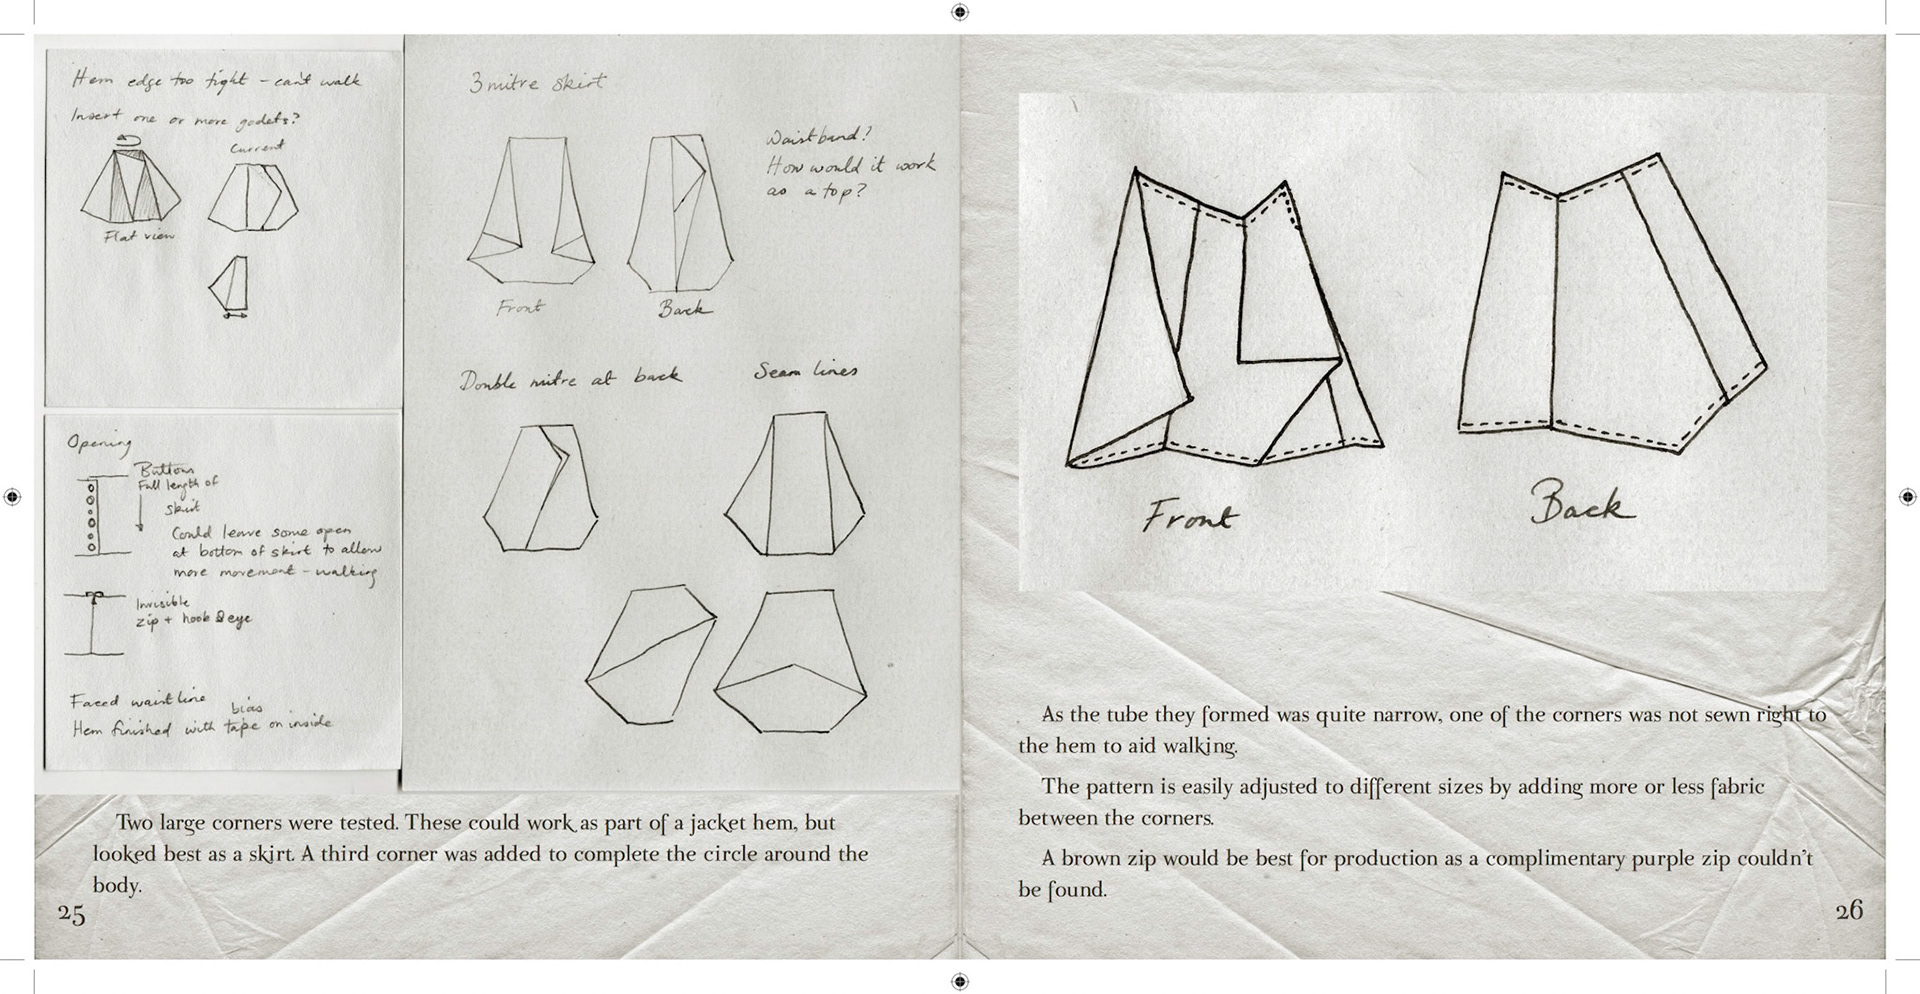 Hem edge too tight - can't walk
Insert one or more godets?
Current
Flat view
Opening
Buttons
Full length of
skirt
Could leave some open
at bottom of skirt to allow
more movement - walking
Invisible
zip + hook & eye
Faced waistline
bias
Hem finished with tape on inside
3 mitre skirt
Waistband?
How would it work
as a top?
Front
Back
Double mitre at back
Seam lines
Two large corners were tested. These could work as part of a jacket hem, but
looked best as a skirt. A third corner was added to complete the circle around the
body.
25
Front
Back
As the tube they formed was quite narrow, one of the corners was not sewn right to
the hem to aid walking.
The pattern is easily adjusted to different sizes by adding more or less fabric
between the corners.
A brown zip would be best for production as a complimentary purple zip couldn't
be found.
26